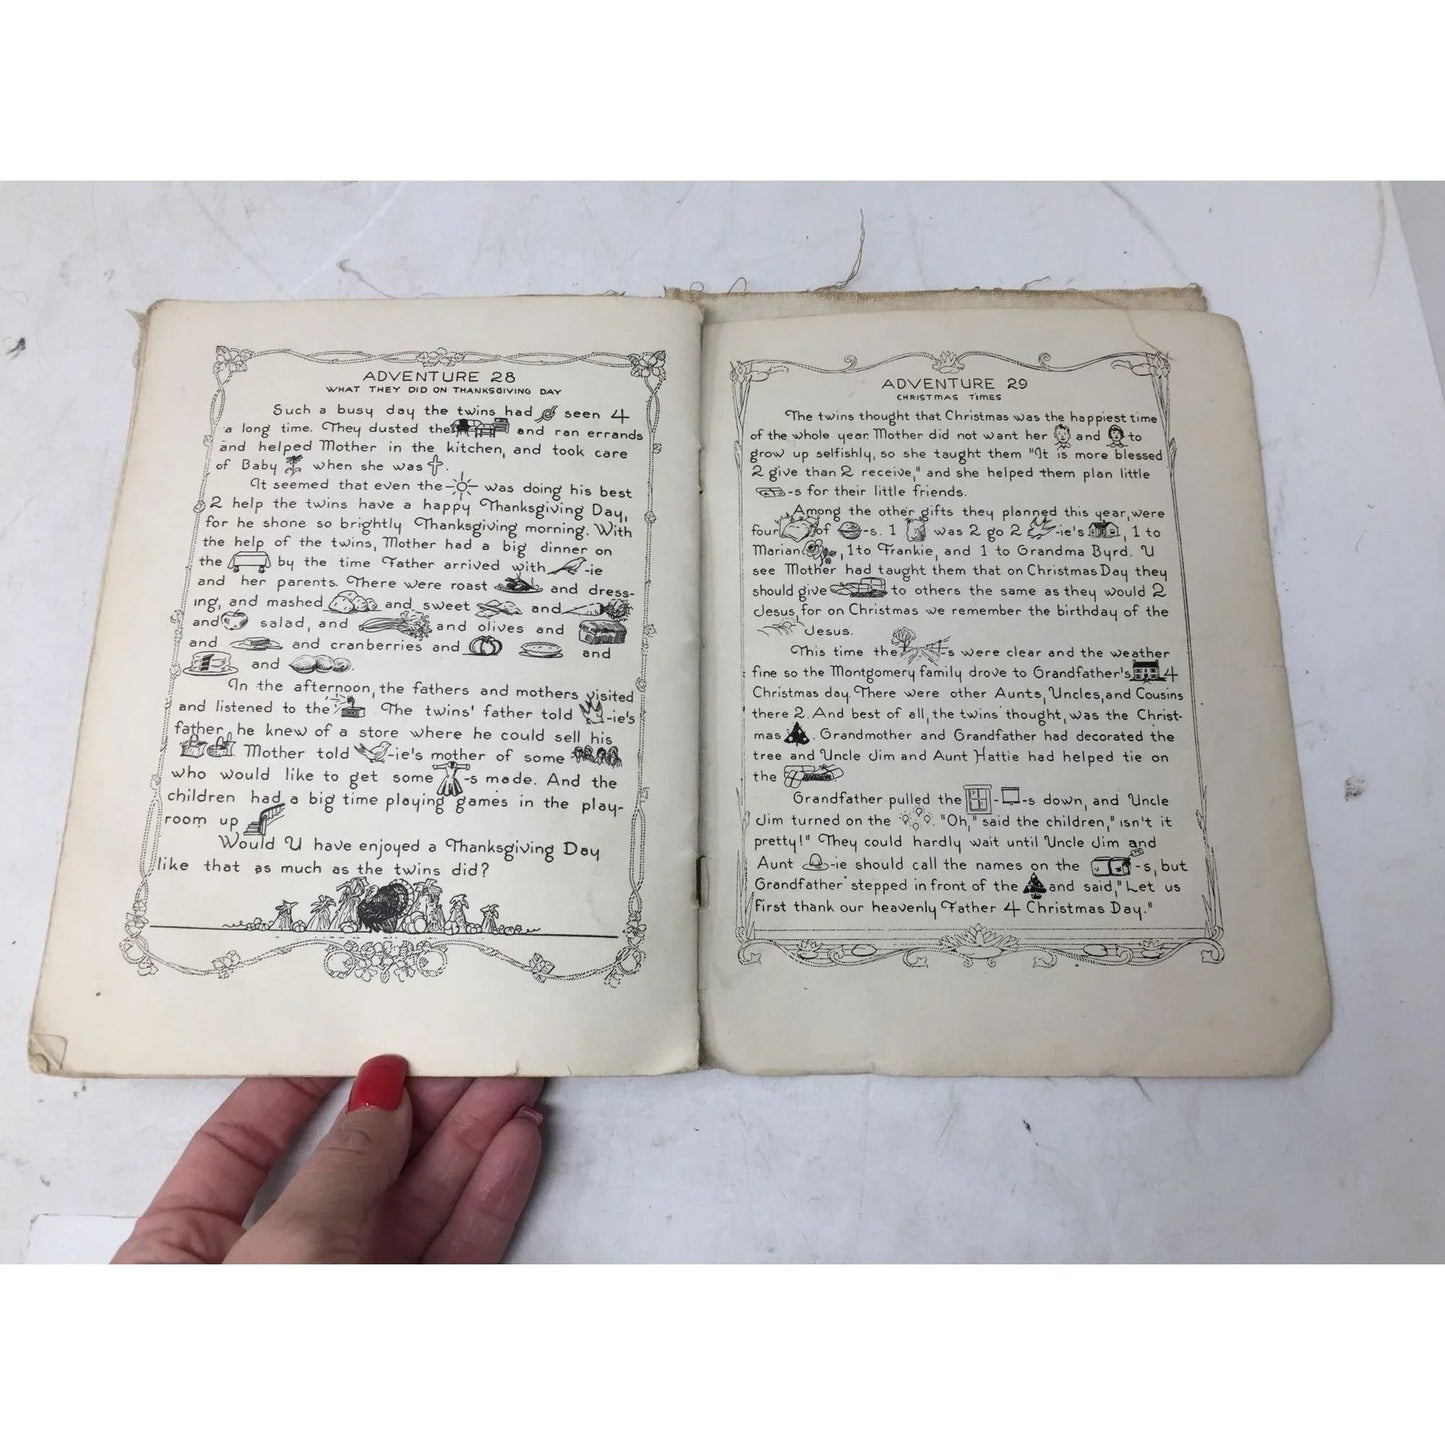 ADVENTURE 28
WHAT THEY DID ON THANKSGIVING DAY
Such a busy day the twins had seen 4
a long time. They dusted the and ran errands
and helped Mother in the kitchen, and took care
of Baby when she was .
It seemed that even the was doing his best
2 help the twins have a happy Thanksgiving Day,
for he shone so brightly Thanksgiving morning. With
the help of the twins, Mother had a big dinner on
the by the time Father arrived with -ie
and her parents. There were roast and dress-
ing, and mashed and sweet and
and salad, and and olives and
and and cranberries and and
and .
In the afternoon, the fathers and mothers visited
and listened to the . The twins' father told -ie's
father he knew of a store where he could sell his
. Mother told -ie's mother of some
who would like to get some -s made. And the
children had a big time playing games in the play-
room up .
Would U have enjoyed a Thanksgiving Day
like that as much as the twins did?
ADVENTURE 29
CHRISTMAS TIMES
The twins thought that Christmas was the happiest time
of the whole year. Mother did not want her and to
grow up selfishly, so she taught them "It is more blessed
2 give than 2 receive," and she helped them plan little
-s for their little friends.
Among the other gifts they planned this year, were
four of -s. 1 was 2 go 2 -ie's , 1 to
Marian , 1 to Frankie, and 1 to Grandma Byrd. U
see Mother had taught them that on Christmas Day they
should give to others the same as they would 2
Jesus, for on Christmas we remember the birthday of the
Jesus.
This time the -s were clear and the weather
fine so the Montgomery family drove to Grandfather's 4
Christmas day. There were other Aunts, Uncles, and Cousins
there 2. And best of all, the twins thought, was the Christ-
mas . Grandmother and Grandfather had decorated the
tree and Uncle Jim and Aunt Hattie had helped tie on
the
Grandfather pulled the - -s down, and Uncle
Jim turned on the . "Oh," said the children," isn't it
pretty!" They could hardly wait until Uncle Jim and
Aunt -ie should call the names on the -s, but
Grandfather stepped in front of the and said, "Let us
First thank our heavenly Father 4 Christmas Day."